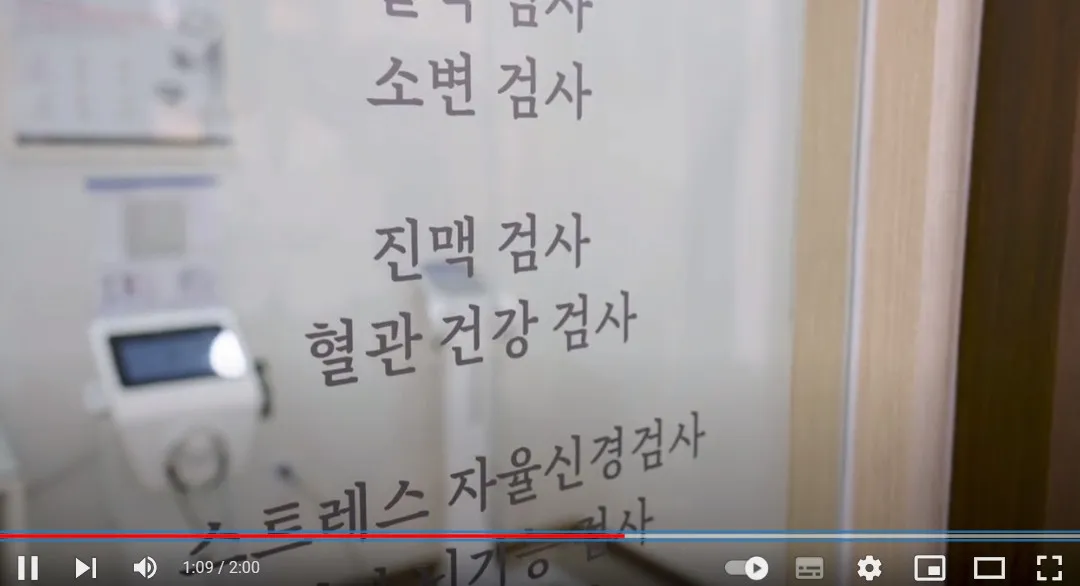 검사
소변 검사
진맥 검사
혈관 건강 검사
스트레스 자율신경검사
검사
1:09 / 2:00